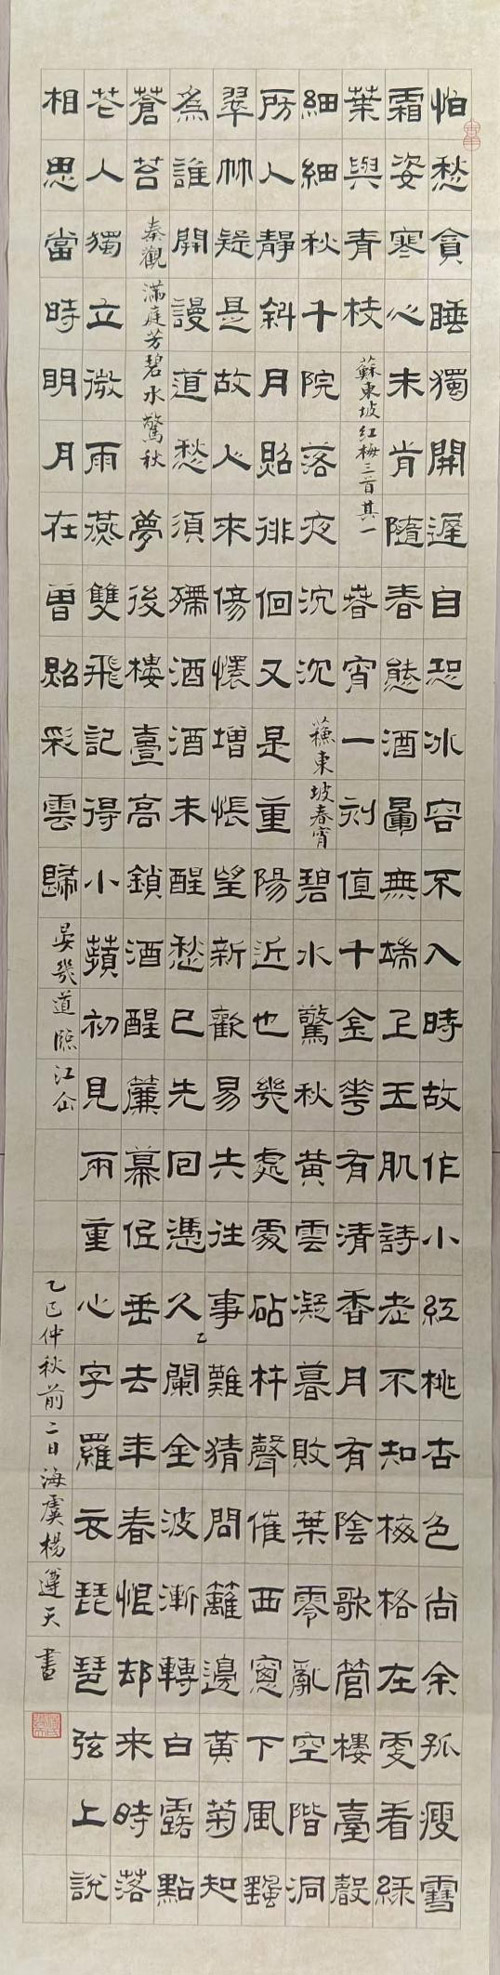 怕愁貪睡獨開遲自恐冰容不入時故作小紅桃杏色尚余孤瘦雪
霜姿寒心未肯隨春態酒暈無端上玉肌詩老不知梅格在更看綠
葉與青枝 蘇東坡紅梅三首其一 春宵一刻值千金花有清香月有陰歌管樓臺聲
細細秋千院落夜沉沉 蘇東坡春宵 碧水驚秋黃雲凝暮敗葉零亂空階洞
房人靜斜月照徘徊又是重陽近也幾處處砧杵聲催西窗下風搖
翠竹疑是故人來傷懷增悵望新歡易失往事難猜問籬邊黃菊知
為誰開謾道愁須殢酒酒未醒愁已先回憑久闌金波漸轉白露點
蒼苔 秦觀滿庭芳碧水驚秋 夢後樓臺高鎖酒醒簾幕低垂去年春恨却来時落
花人獨立微雨燕雙飛記得小蘋初見兩重心字羅衣琵琶弦上說
相思當時明月在曾照彩雲歸 晏幾道臨江仙
乙巳仲秋前二日海虞楊遵天書